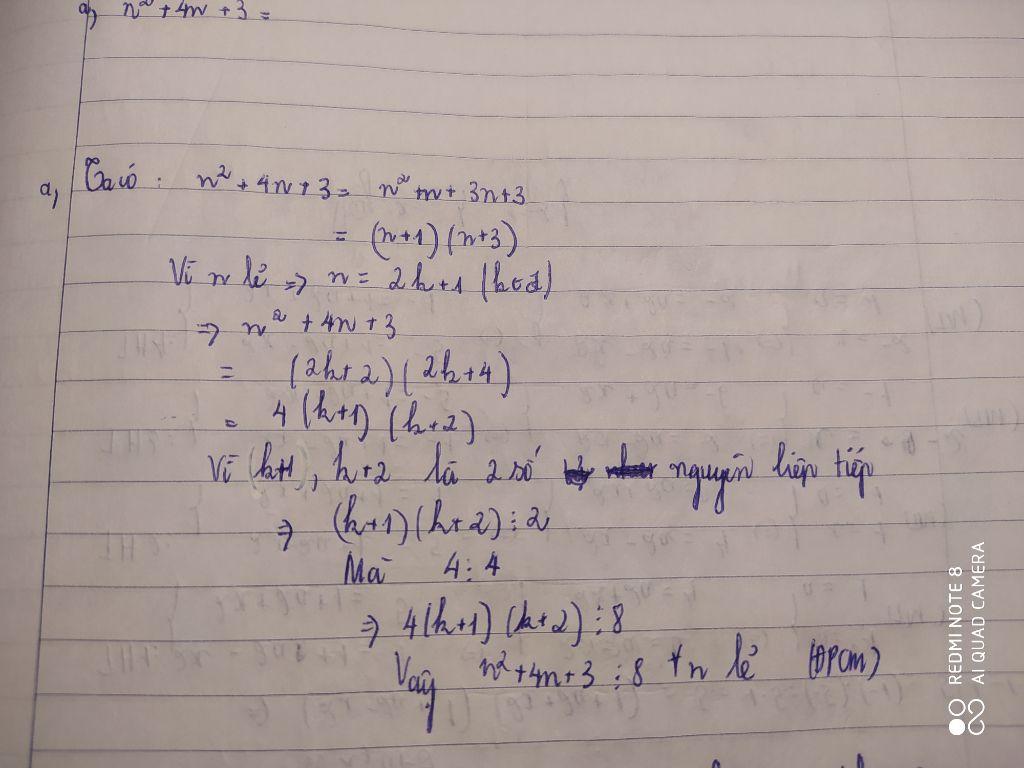 a, n² + 4n + 3 =
a, Ta có : n² + 4n + 3 = n² + n + 3n + 3
= (n+1)(n+3)
Vì n lẻ ⇒ n = 2k+1 (k∈Z)
⇒ n² + 4n + 3
= (2k+2)(2k+4)
= 4(k+1)(k+2)
Vì k+1, k+2 là 2 số nguyên liên tiếp
⇒ (k+1)(k+2) ⋮ 2
Mà 4 ⋮ 4
⇒ 4(k+1)(k+2) ⋮ 8
Vậy n² + 4n + 3 ⋮ 8 ∀ n lẻ (ĐPCM)
REDMI NOTE 8
AI QUAD CAMERA